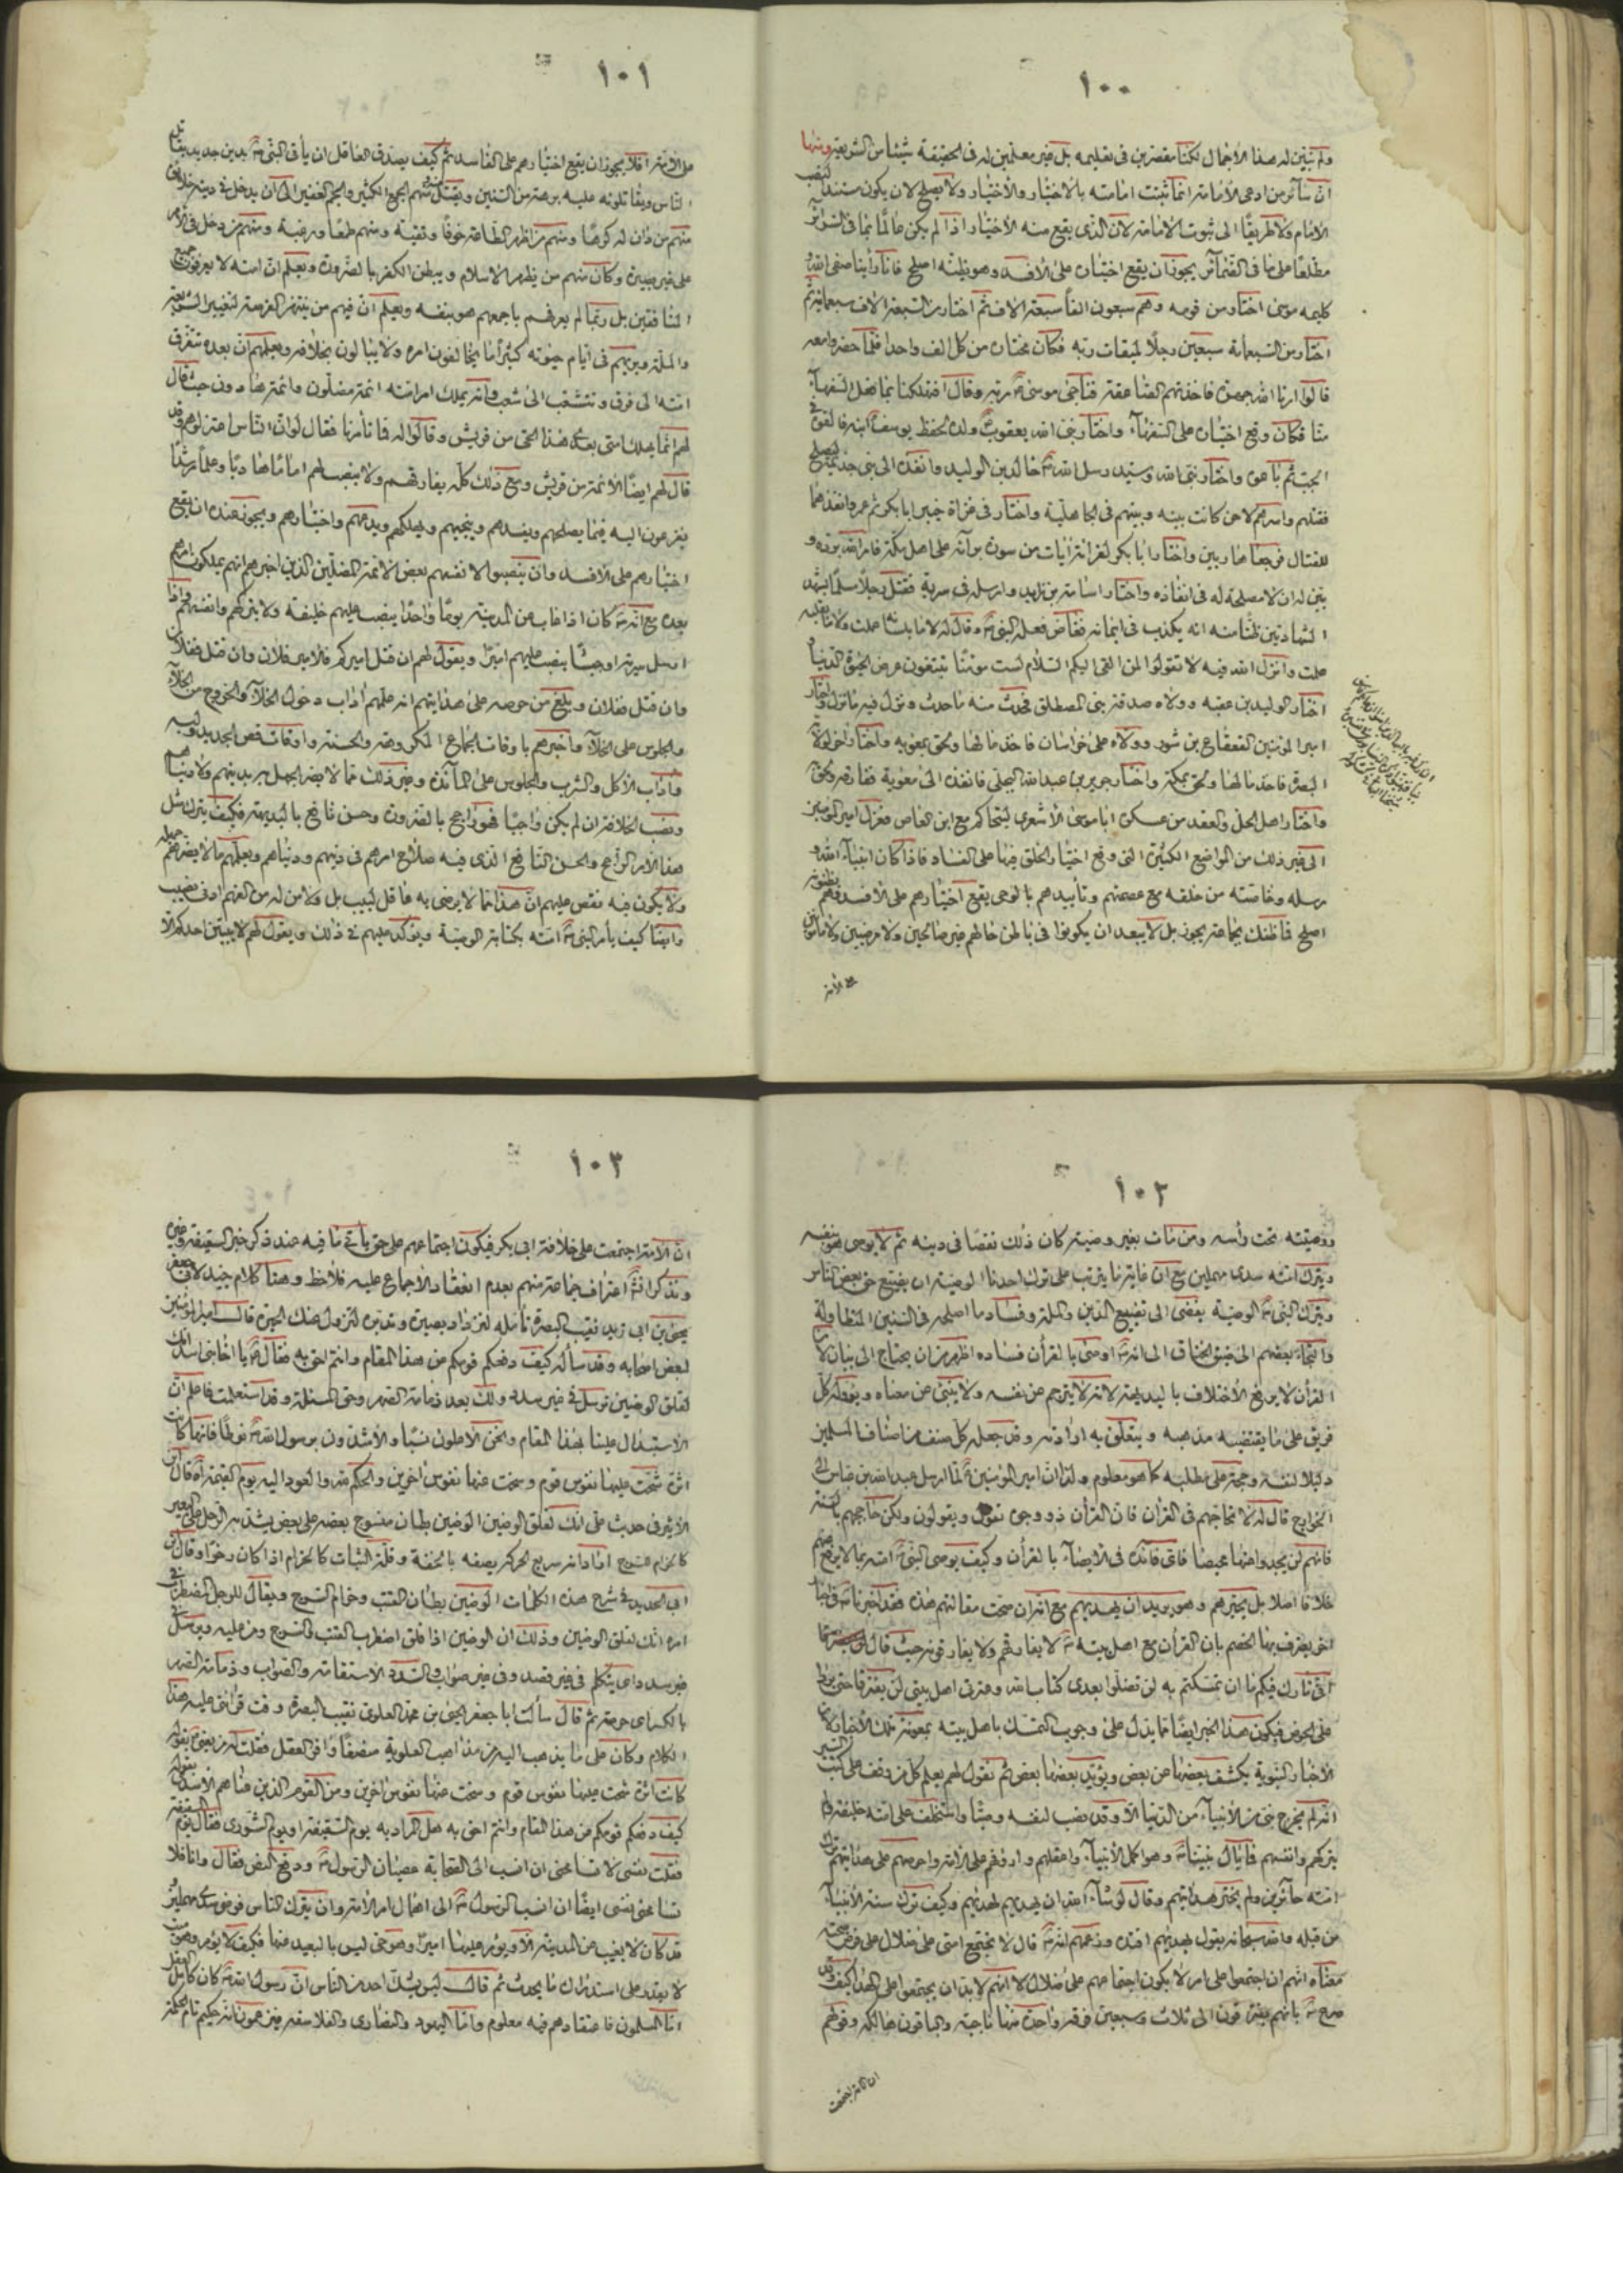 ١٠٠
ولم نبين له هذا الاجمال لكنا مقصرين في تعليمه بل غير معلمين له في الحقيقة شيئا من الشريعة ومنها
ان سائر من ادعى الامامة انما تثبت امامته بالاختيار والاختيار ولا يصلح لان يكون مستندا لنصب
الامام ولا طريقا الى ثبوت الامامة لان الذي يقع منه الاختيار اذا لم يكن عالما بما في السرائر
مطلعا على ما في الضمائر يجوز ان يقع اختياره على الافسد وهو يظنه اصلح فانا رأينا صفي الله و
كليمه موسى اختار من قومه وهم سبعون الفا سبعة الاف ثم اختار من السبعة الاف سبعمائة ثم
اختار من السبعمائة سبعين رجلا لميقات ربه فكان مختاره من كل الف واحدا فلما حضروا معه
قالوا ارنا الله جهرة فاخذتهم الصاعقة فناجى موسى ربه وقال اتهلكنا بما فعل السفهاء
منا فكان وقع اختياره على السفهاء واختار نبي الله يعقوب ولده لحفظ يوسف ابنه فالقوه في
الجب ثم باعوه واختار نبي الله وسيد رسل الله خالد بن الوليد وانفذه الى بني جذيمة ليصلح
فقتلهم واسرهم لاحن كانت بينه وبينهم في الجاهلية واختار في غزاة خيبر ابا بكر ثم عمر وانفذهما
للقتال فرجعا هاربين واختار ابا بكر لقرائة ايات من سورة براءة على اهل مكة فامر الله برده و
بين له ان لا مصلحة له في انفاذه واختار اسامة بن زيد وارسله في سرية فقتل رجلا مسلما يشهد
الشهادتين ظنا منه انه يكذب في ايمانه فعاص فعله النبي وقال له لا ما بلسانه علمت ولا ما بقلبه
علمت وانزل الله فيه لا تقولوا لمن القى اليكم السلام لست مؤمنا تبتغون عرض الحيوة الدنيا و
اختار الوليد بن عقبة وولاه صدقة بني المصطلق فحدث منه ما حدث ونزل فيه ما نزل واختار
امير المؤمنين القعقاع بن شور وولاه على خراسان فاخذ مالها ولحق بمعوية واختار اخر لولاية
البصرة فاخذ مالها ولحق بمكة واختار جرير بن عبد الله البجلي فانفذه الى معوية ففارقه ولحق
واختار اهل الحل والعقد من عسكره ابا موسى الاشعري ليتحاكم مع ابن العاص فعزل امير المؤمنين
الى غير ذلك من المواضع الكثيرة التي وقع اختيار الخلق فيها على الفساد فاذا كان انبياء الله و
رسله وخاصته من خلقه مع عصمتهم وتأييدهم بالوحي يقع اختيارهم على الافسد وهم يظنونه
اصلح فما ظنك بجماعة يجوز بل لا يبعد ان يكونوا في باطن حالهم غير صالحين ولا مرضيين ولا مأمونين
على الامة
١٠١
على الامة افلا يجوز ان يقع اختيارهم على الفاسد ثم كيف يصدق العاقل ان يأتي النبي بدين جديد يقاتل
الناس ويقاتلونه عليه برهة من السنين ويقتل منهم الجمع الكثير والجم الغفير الى ان يدخل في دينه خلائق
منهم من دان له كرها ومنهم من اظهر الطاعة خوفا وتقية ومنهم طمعا ورغبة ومنهم من دخل في الامر
على غير بصيرة وكان منهم من يظهر الاسلام ويبطن الكفر بالضرورة ويعلم ان امته لا يعرفون جميع
المنافقين بل ربما لم يعرفهم باجمعهم هو بنفسه ويعلم ان فيهم من ينتهز الفرصة لتغيير الشريعة
والملة ويريهم في ايام حيوته كثيرا ما يخالفون امره ولا يبالون بخلافه ويعلمهم ان بعده تتفرق
امته الى فرق وتتشعب الى شعب وانه يملك امر امته ائمة مضلون وائمة هداة دون حيث قال
لهم انما يهلك امتي بعدي هذا الحي من قريش وقالوا له فما تأمرنا فقال لو ان الناس اعتزلوهم وقد
قال لهم ايضا الائمة من قريش ومع ذلك كله يفارقهم ولا ينصب لهم اماما هاديا وعلما مرشدا
يفزعون اليه فيما يصلحهم ويفسدهم وينجيهم ويهلكهم ويدعهم واختيارهم ويجوز عنده ان يقع
اختيارهم على الافسد وان ينصبوا لانفسهم بعض الائمة المضلين الذين اخبرهم انهم يملكون امرهم
بعده مع انه كان اذا غاب عن المدينة يوما واحدا ينصب عليهم خليفة ولا يتركهم وانفسهم واذا
ارسل سرية او جيشا ينصب عليهم اميرا ويقول لهم ان قتل اميركم فالامير فلان وان قتل ففلان
وان قتل ففلان وبلغ من حرصه على هدايتهم انه علمهم اداب دخول الخلاء والخروج من الخلاء
والجلوس على الخلاء واخبرهم باوقات الجماع المكروهة والحسنة واوقات قص الجديد ولبسه
واداب الاكل والشرب والجلوس على المائدة وغير ذلك مما لا يضر الجهل به بدينهم ولا دنياهم
ونصب الخلافة ان لم يكن واجبا فهو راجح بالضرورة وحسن نافع بالبديهة فكيف يترك مثل
هذا الامر الراجح والحسن النافع الذي فيه صلاح امرهم في دينهم ودنياهم ويعلمهم ما لا يضرهم جهله
ولا يكون فيه نقص عليهم ان هذا مما لا يرضى به عاقل لبيب بل ولا من له من الفهم ادنى نصيب
وايضا كيف يأمر النبي امته بكتابة الوصية ويؤكد عليهم في ذلك ويقول لهم لا يبيتن احدكم الا
١٠٢
ووصيته تحت رأسه ومن مات بغير وصية كان ذلك نقصا في دينه ثم لا يوصي هو بنفسه
ويترك امته سدى مهملين مع ان غاية ما يترتب على ترك احدنا الوصية ان يضيع حق بعض الناس
وترك النبي الوصية يفضي الى تضييع الدين والملة وفساد ما اصلحه في السنين المتطاولة
والتجاء بعضهم الى ضيق الخناق الى انه اوصى بالقرآن فساده اظهر من ان يحتاج الى بيان لان
القرآن لا يرفع الاختلاف بالبديهة لانه لا يترجم عن نفسه ولا ينبئ عن معناه ويؤوله كل
فريق على ما يقتضيه مذهبه ويتعلق به ارادته وقد جعله كل صنف من اصناف المسلمين
دليلا لنفسه وحجة على مطلبه كما هو معلوم ولذا ان امير المؤمنين لما ارسل عبد الله بن عباس الى
الخوارج قال له لا تحاجهم في القرآن فان القرآن ذو وجوه تقول ويقولون ولكن حاججهم بالسنة
فانهم لن يجدوا عنها محيصا فاي فائدة في الايصاء بالقرآن وكيف يوصي النبي امته بما لا يرفع عنهم
خلافا اصلا بل يحيرهم وهو يريد ان يهديهم مع انه ان صحت مقالتهم هذه فقد اخبرنا في اخبار
اخر يعترف بها الخصم بان القرآن مع اهل بيته لا يفارقهم ولا يفارقونه حيث قال
اني تارك فيكم ما ان تمسكتم به لن تضلوا بعدي كتاب الله وعترتي اهل بيتي لن يفترقا حتى يردا
على الحوض فيكون هذا الخبر ايضا مما يدل على وجوب التمسك باهل بيته بمعونة تلك الاخبار لان
الاخبار النبوية يكشف بعضها عن بعض ويؤيد بعضها بعض ثم نقول لهم يعلم كل من وقف على كتب السير
انه لم يخرج نبي من الانبياء من الدنيا الا وقد نصب لنفسه وصيا واستخلف على امته خليفة ولم
يتركهم وانفسهم فما بال نبينا وهو اكمل الانبياء واعقلهم وارؤفهم على الامة واحرصهم على هدايتهم ترك
امته حائرين ولم يختر هدايتهم وقال لو شاء الله ان يهديهم لهديهم وكيف ترك سنة الانبياء
من قبله والله سبحانه يقول فبهديهم اقتده وزعمهم انه قال لا تجتمع امتي على ضلال على فرض صحته
معناه انهم ان اجتمعوا على امر لا يكون اجتماعهم على ضلال لا انهم لا بد ان يجتمعوا على الهدى كيف وقد
صرح بانهم يفترقون الى ثلاث وسبعين فرقة واحدة منها ناجية والباقون هالكة وقولهم
ان الامة اجتمعت
١٠٣
ان الامة اجتمعت على خلافة ابي بكر فيكون اجتماعهم على حق يأتي ما فيه عند ذكر خبر السقيفة وغيره
ونذكر انه اعتراف جماعة منهم بعدم انعقاد الاجماع عليه فلاحظ وهنا كلام جيد لابي جعفر
يحيى بن ابي زيد نقيب البصرة تأمله لتزداد بصيرة وتدبره لتزول عنك الحيرة قال امير المؤمنين
لبعض اصحابه وقد سأله كيف دفعكم قومكم عن هذا المقام وانتم احق به فقال يا اخا بني اسد انك
لقلق الوضين ترسل في غير سدد ولك بعد ذمامة الصهر وحق المسئلة وقد استعلمت فاعلم ان
الاستبداد علينا بهذا المقام ونحن الاعلون نسبا والاشدون برسول الله نوطا فانها كانت
اثرة شحت عليها نفوس قوم وسخت عنها نفوس اخرين والحكم لله والعود اليه يوم القيمة اه قال ابن
الاثير في حديث علي انك لقلق الوضين الوضين بطان منسوج بعضه على بعض يشد به الرحل على البعير
كالحزام للسرج اراد انه سريع الحركة يصفه بالخفة وقلة الثبات كالحزام اذا كان رخوا وقال ابن
ابي الحديد في شرح هذه الكلمات الوضين بطان القتب وحزام السرج ويقال للرجل المضطرب في
امره انك لقلق الوضين وذلك ان الوضين اذا قلق اضطرب القتب او السرج ومن عليه ويرسل في
غير سدد اي يتكلم في غير قصد وفي غير صواب والسدد الاستقامة والصواب وذمامة الصهر
بالكسر اي حرمته ثم قال سألت ابا جعفر يحيى بن محمد العلوي نقيب البصرة وقت قرائتي عليه هذا
الكلام وكان على ما يذهب اليه من مذاهب العلوية منصفا وافر العقل فقلت له من يعني بقوله
كانت اثرة شحت عليها نفوس قوم وسخت عنها نفوس اخرين ومن القوم الذين عناهم الاسدي بقوله
كيف دفعكم قومكم عن هذا المقام وانتم احق به هل المراد به يوم السقيفة او يوم الشورى فقال يوم السقيفة
فقلت نفسي لا تسامحني ان انسب الى الصحابة عصيان الرسول ودفع النص فقال وانا فلا
تسامحني نفسي ايضا ان انسب الرسول الى اهمال امر الامة وان يترك الناس فوضى سدى مهملين
قد كان لا يغيب عن المدينة الا ويؤمر عليها اميرا وهو حي ليس بالبعيد عنها فكيف لا يؤمر وهو ميت
لا يقدر على استدراك ما يحدث ثم قال ليس يشك احد من الناس ان رسول الله كان كامل العقل
اما المسلمون فاعتقادهم فيه معلوم واما اليهود والنصارى والفلاسفة فيزعمون انه حكيم تام الحكمة